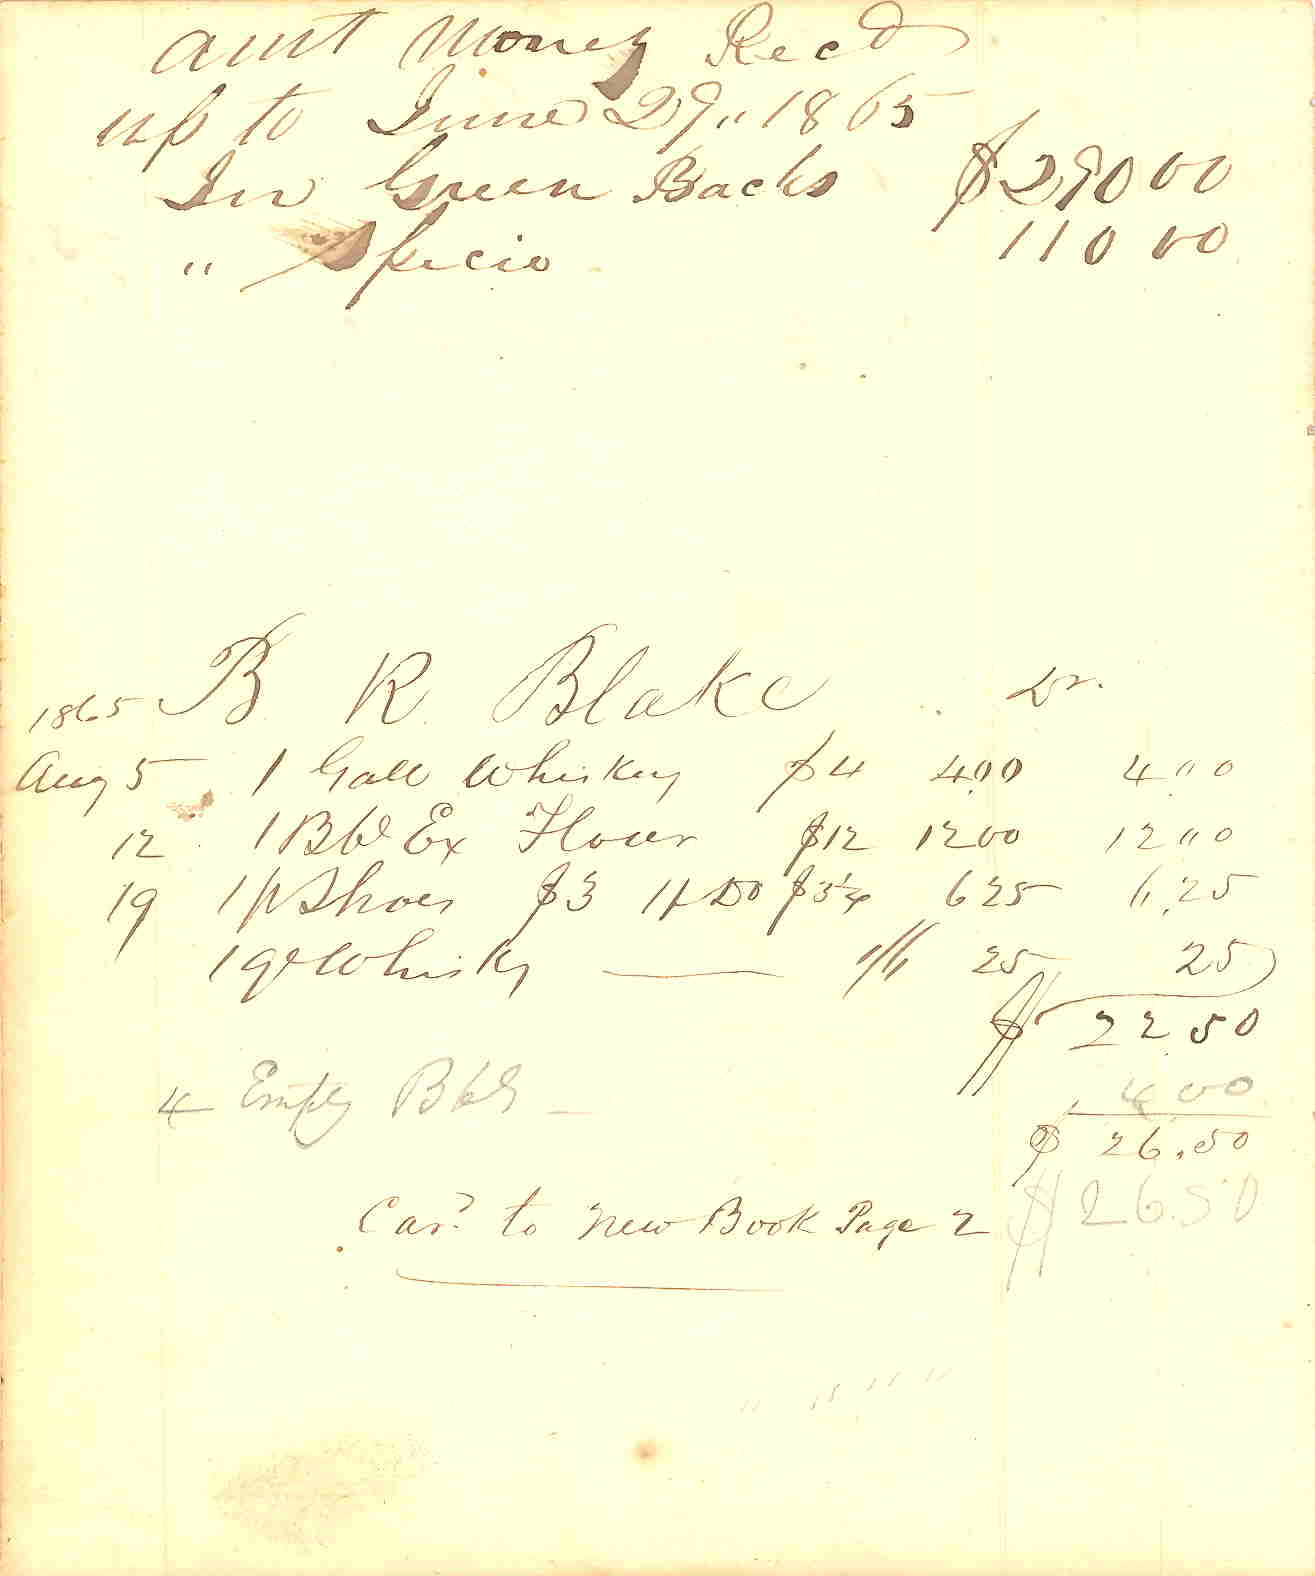 amt Money Recd
up to June 29,, 1865
In Green Backs $290 00
" Specie 110 00
B R Blake Dr.
1865
Aug 5 1 Gall Whiskey $4 4.00 4 " 0
12 1 Bbl Ex Flour $12 12 00 12 " 0
19 1 pr Shoes $3 1 pr Do $3¼ 6 25 6,25
1 qt Whisky — 1/6 25 25
$ 22 50
4 Empty Bbls — 4 00
$ 26.50
Card to New Book Page 2 $26.50